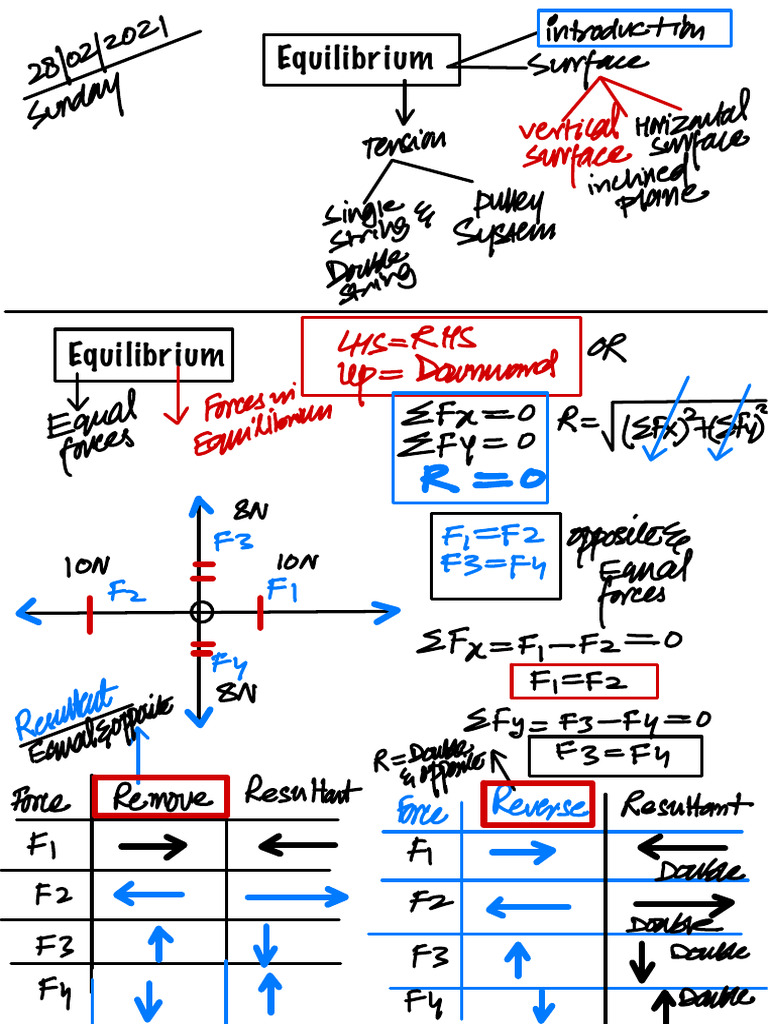 28/02/2021
Sunday
Equilibrium
introduction
Surface
vertical
surface
Horizontal
surface
inclined
plane
Tension
Single
string &
Double
string
Pulley
System
Equilibrium
Equal
forces
Forces in
Equilibrium
LHS = RHS
Up = Downward
OR
ΣFx = 0
ΣFy = 0
R = 0
R = √(ΣFx)²+(ΣFy)²
8N
F3
10N
F2
10N
F1
F4
8N
F1 = F2
F3 = F4
opposite &
Equal
forces
ΣFx = F1 − F2 = 0
F1 = F2
ΣFy = F3 − F4 = 0
F3 = F4
Resultant
Equal & opposite
Force Remove Resultant
F1
F2
F3
F4
R = Double
& opposite
Force Reverse Resultant
F1 Double
F2 Double
F3 Double
F4 Double